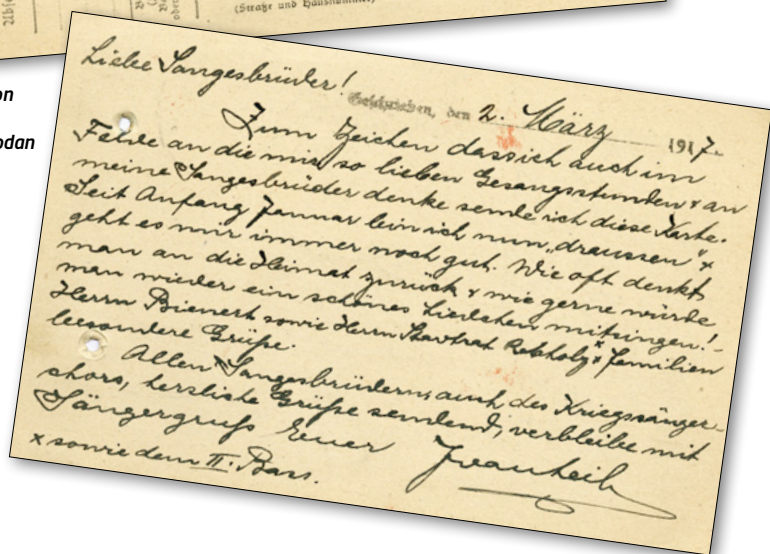 Abs
(Straße und Hausnummer)
on
odan
Liebe Sangesbrüder!
Geschrieben, den 2. März 1917.
Zum Zeichen dass ich auch im
Felde an die mir so lieben Gesangsstunden & an
meine Sangesbrüder denke sende ich diese Karte.
Seit Anfang Januar bin ich nun „draussen" &
geht es mir immer noch gut. Wie oft denkt
man an die Heimat zurück & wie gerne würde
man wieder ein schönes Liedchen mitsingen! –
Herrn Bienert sowie Herrn Stadtrat Rebholz x & Familien
besondere Grüße.
Allen Sangesbrüdern, auch des Kriegssänger-
chors, herzliche Grüße sendend, verbleibe mit
Sängergruß Euer
x sowie dem II. Bass.